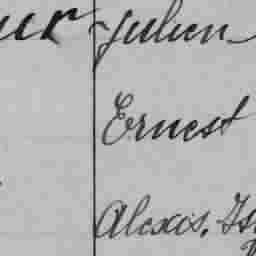 Julien
Ernest
Alexis,